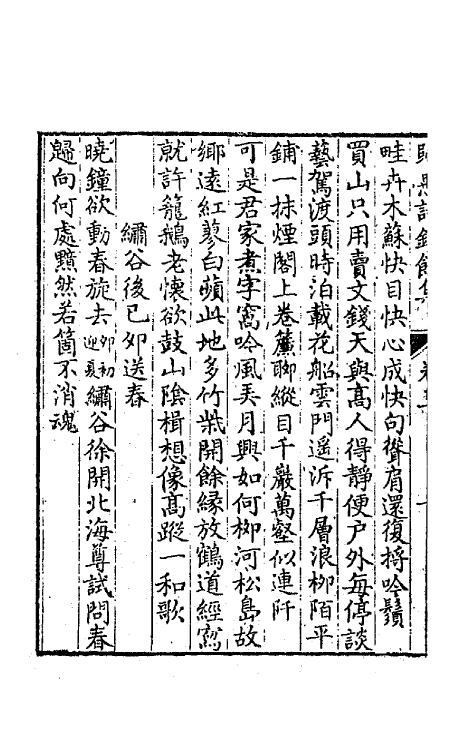 畦卉木蘇快目快心成快句聳肩還復捋吟鬚
買山只用賣文錢天與高人得靜便户外每停談
藝駕渡頭時泊載花船雲門遥泝千層浪栁陌平
鋪一抹煙閣上卷簾聊縱目千巖萬壑似連阡
可是君家煮字窩吟風弄月興如何栁河松島故
鄉遠紅蓼白蘋此地多竹牀開餘緣放鶴道經寫
就許籠鵝老懷欲鼓山陰楫想像高蹤一和歌
繡谷後己夘送春
曉鐘欲動春旋去夘初迎夏繡谷徐開北海尊試問春
歸向何處黯然若箇不消魂